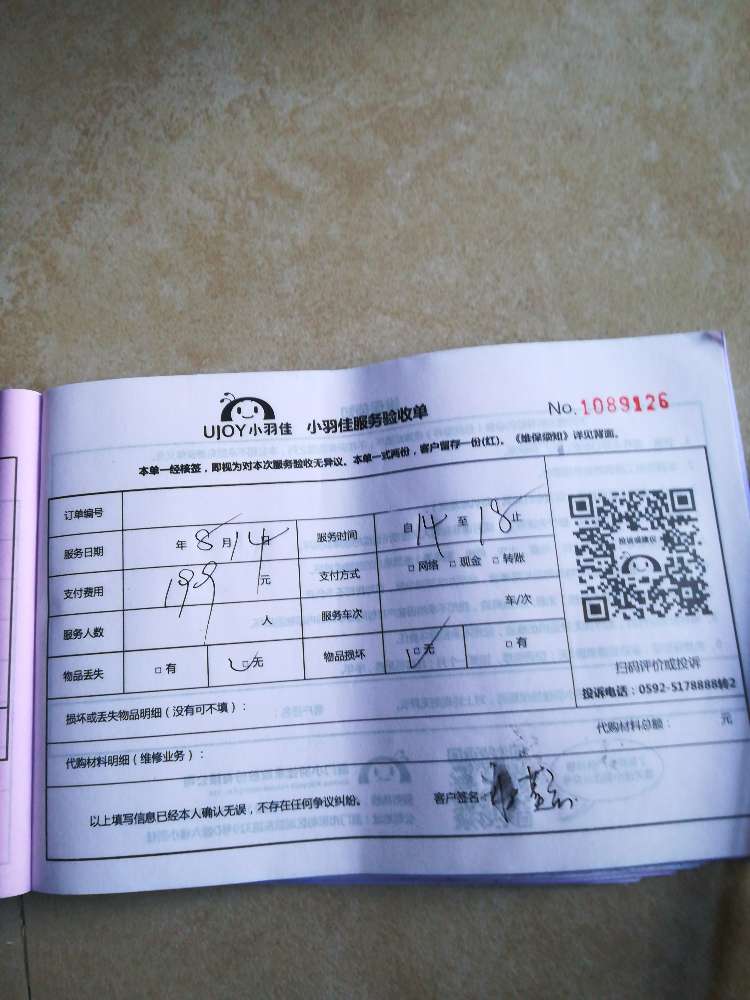 UJOY小羽佳 小羽佳服务验收单 No.1089126
本单一经核签，即视为对本次服务验收无异议。本单一式两份，客户留存一份(红)。《维保须知》详见背面。
订单编号
服务日期 年 8 月 14 日 服务时间 自 14 至 18 止
支付费用 199 元 支付方式 □网络 □现金 □转账
服务人数 人 服务车次 车/次
物品丢失 □有 ☑无 物品损坏 ☑无 □有
投诉或建议
扫码评价或投诉
投诉电话：0592-5178888转2
损坏或丢失物品明细（没有可不填）：
代购材料明细（维修业务）： 代购材料总额： 元
以上填写信息已经本人确认无误，不存在任何争议纠纷。 客户签名：